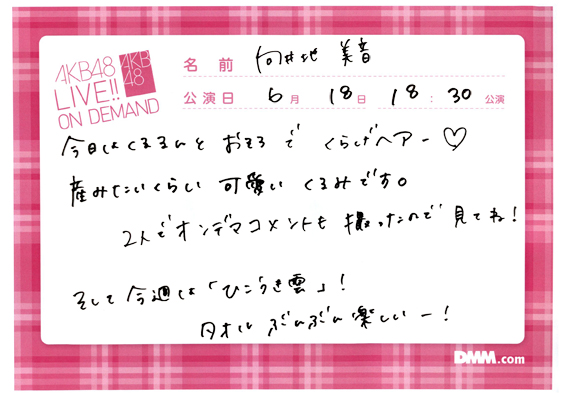 AKB48
LIVE!!
ON DEMAND
AKB
48
名前 向井地 美音
公演日 6月 18日 18:30 公演
今日はくるるんと おそろで くらげヘアー♡
産みたいくらい 可愛い くるみです。
2人でオンデマコメントも 撮ったので 見てね!
そして今週は「ひこうき雲」!
タオル ぶんぶん楽しいー!
DMM.com